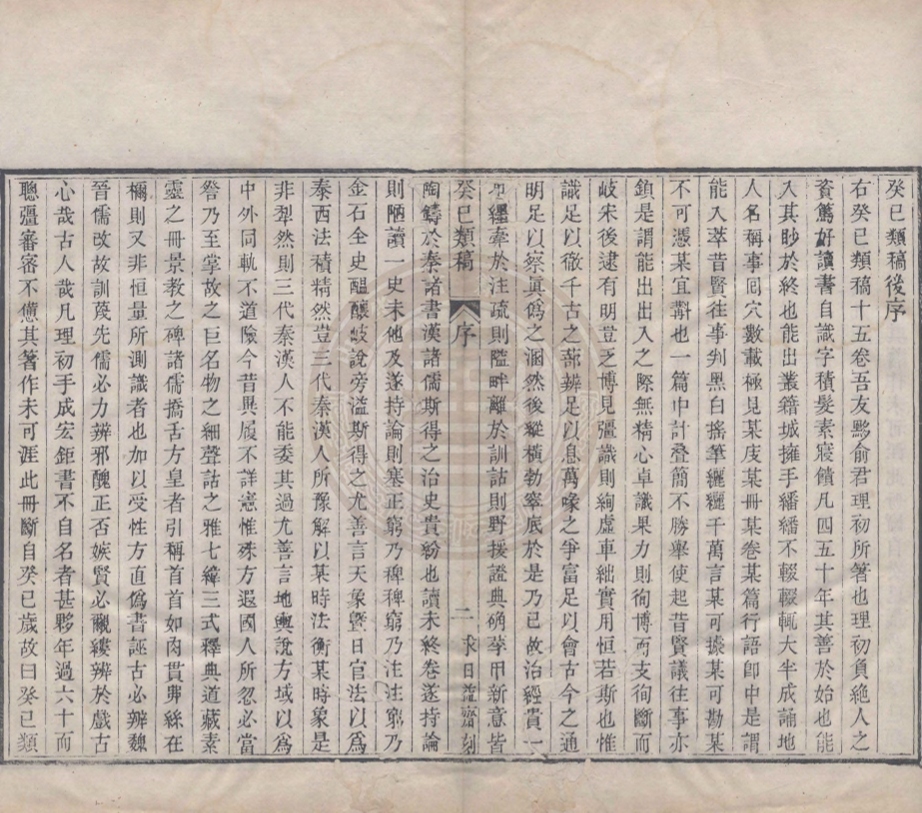 癸巳類稿後序
右癸巳類稿十五卷吾友黟俞君理初所箸也理初負絶人之
資篤好讀書自識字積髮素寢饋凡四五十年其善於始也能
入其眇於終也能出叢籍城擁手繙繙不輟輟輒大半成誦地
人名稱事回穴數載極見某庋某冊某卷某篇行語卽中是謂
能入萃昔賢徃事判黑白搖筆纚纚千萬言某可據某可勘某
不可憑某宜斠也一篇中計疊簡不勝舉使起昔賢議徃事亦
鎖是謂能出出入之際無精心卓識果力則徇博而支徇斷而
歧宋後逮有明豈乏博見彊識則絢虛車絀實用恒若斯也惟
識足以徹千古之蔀辨足以息萬喙之爭富足以會古今之通
明足以察眞僞之溷然後縱橫勃窣底於是乃已故治經貴一
經牽於注疏則隘畔離於訓詁則野援證典确莩甲新意皆
癸巳類稿
序
二
求日益齋刻
陶鑄於秦諸書漢諸儒斯得之治史貴紛也讀未終卷遂持論
則陋讀一史未他及遂持論則塞正窮乃稗稗窮乃注注窮乃
金石全史醞釀歧說旁溢斯得之尤善言天象曁日官法以爲
泰西法積精然豈三代秦漢人所豫解以某時法衡某時象是
非犁然則三代秦漢人不能委其過尤善言地輿說方域以爲
中外同軌不道險今昔異履不詳悳惟殊方遐國人所忽必當
詧乃至掌故之巨名物之細聲詁之雅七緯三式釋典道藏素
靈之冊景教之碑諸儒撟舌方皇者引稱首首如肉貫丳絲在
檷則又非恒量所測識者也加以受性方直僞書誣古必辨魏
晉儒改故訓蔑先儒必力辨邪醜正否嫉賢必覼縷辨於戲古
心哉古人哉凡理初手成宏鉅書不自名者甚夥年過六十而
聰彊審審不憊其箸作未可涯此冊斷自癸巳歲故曰癸巳類